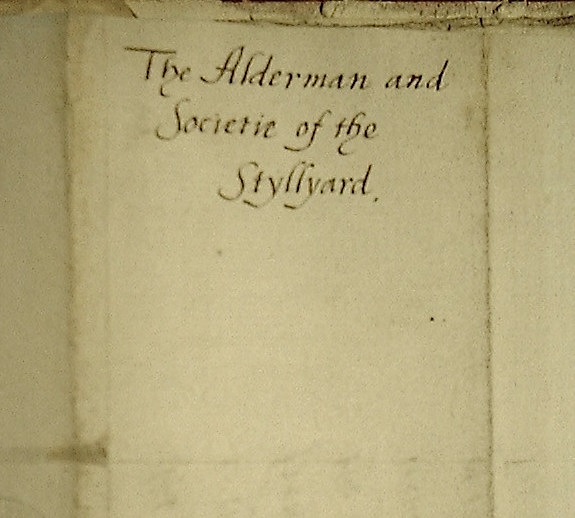 The Alderman and
Societie of the
Styllyard.